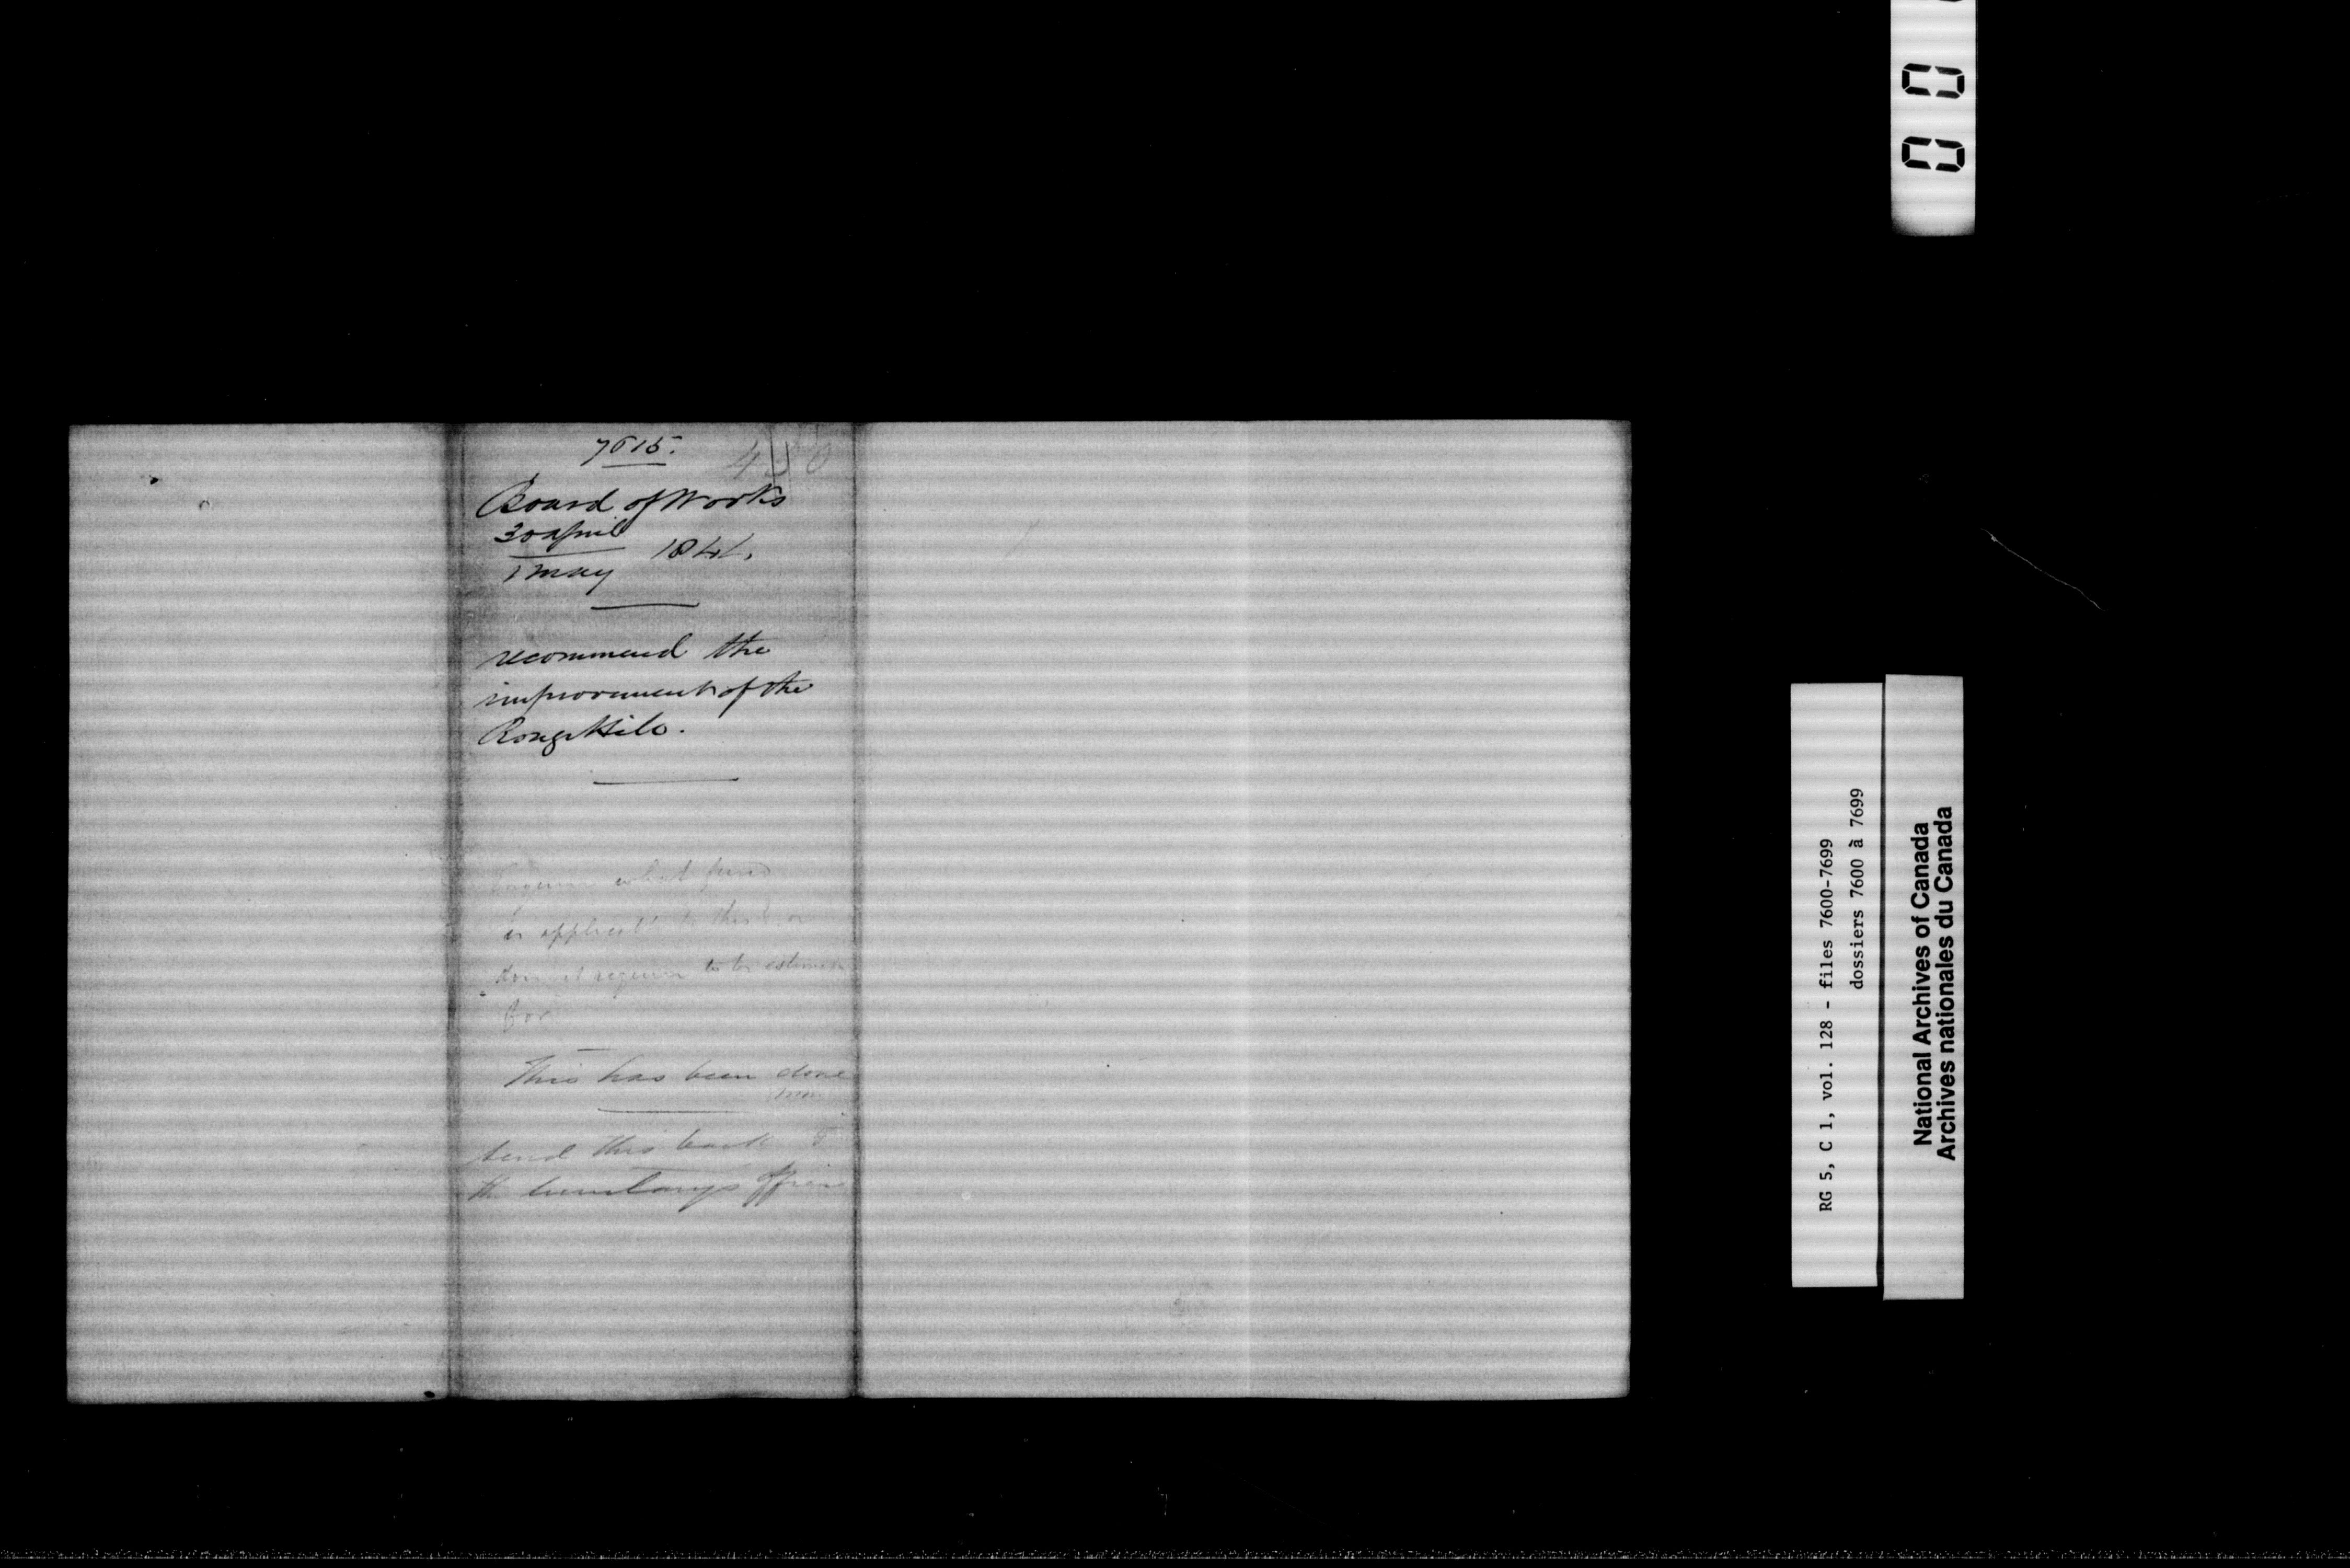 7615.
450
Board of Works
30 april
1 may 1844.
recommend the
improvement of the
Rouge Hills.
Enquire what fund
is applicable to this? or
does it require to be estimated
for
This has been done
send this back to
the Secretary's Office
RG 5, C 1, vol. 128 - files 7600-7699
dossiers 7600 à 7699
National Archives of Canada
Archives nationales du Canada
0 0